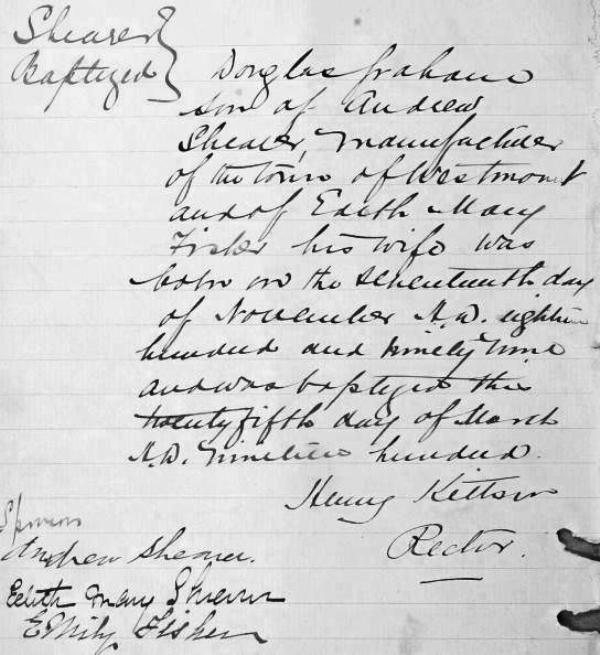 Shearer
Baptized
Douglas Graham
son of Andrew
Shearer, manufacturer
of the town of Westmount
and of Edith Mary
Fisher his wife was
born on the seventeenth day
of November A.D. eighteen
hundred and ninety nine
and was baptized this
twenty fifth day of March
A.D. nineteen hundred.
Henry Kittson
Rector.
Sponsors
Andrew Shearer.
Edith Mary Shearer
Emily Fisher